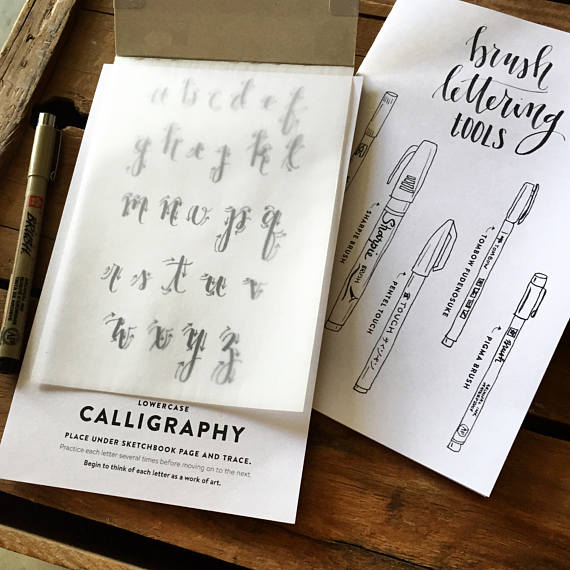 a b c d e f
g h i j k l
m n o p q
r s t u v
w x y z
LOWERCASE
CALLIGRAPHY
PLACE UNDER SKETCHBOOK PAGE AND TRACE.
Practice each letter several times before moving on to the next.
Begin to think of each letter as a work of art.
BRUSH
brush
lettering
TOOLS
SHARPIE BRUSH
Sharpie
BRUSH
PENTEL TOUCH
TOUCH
TOMBOW FUDENOSUKE
TOMBOW
PIGMA BRUSH
Brush